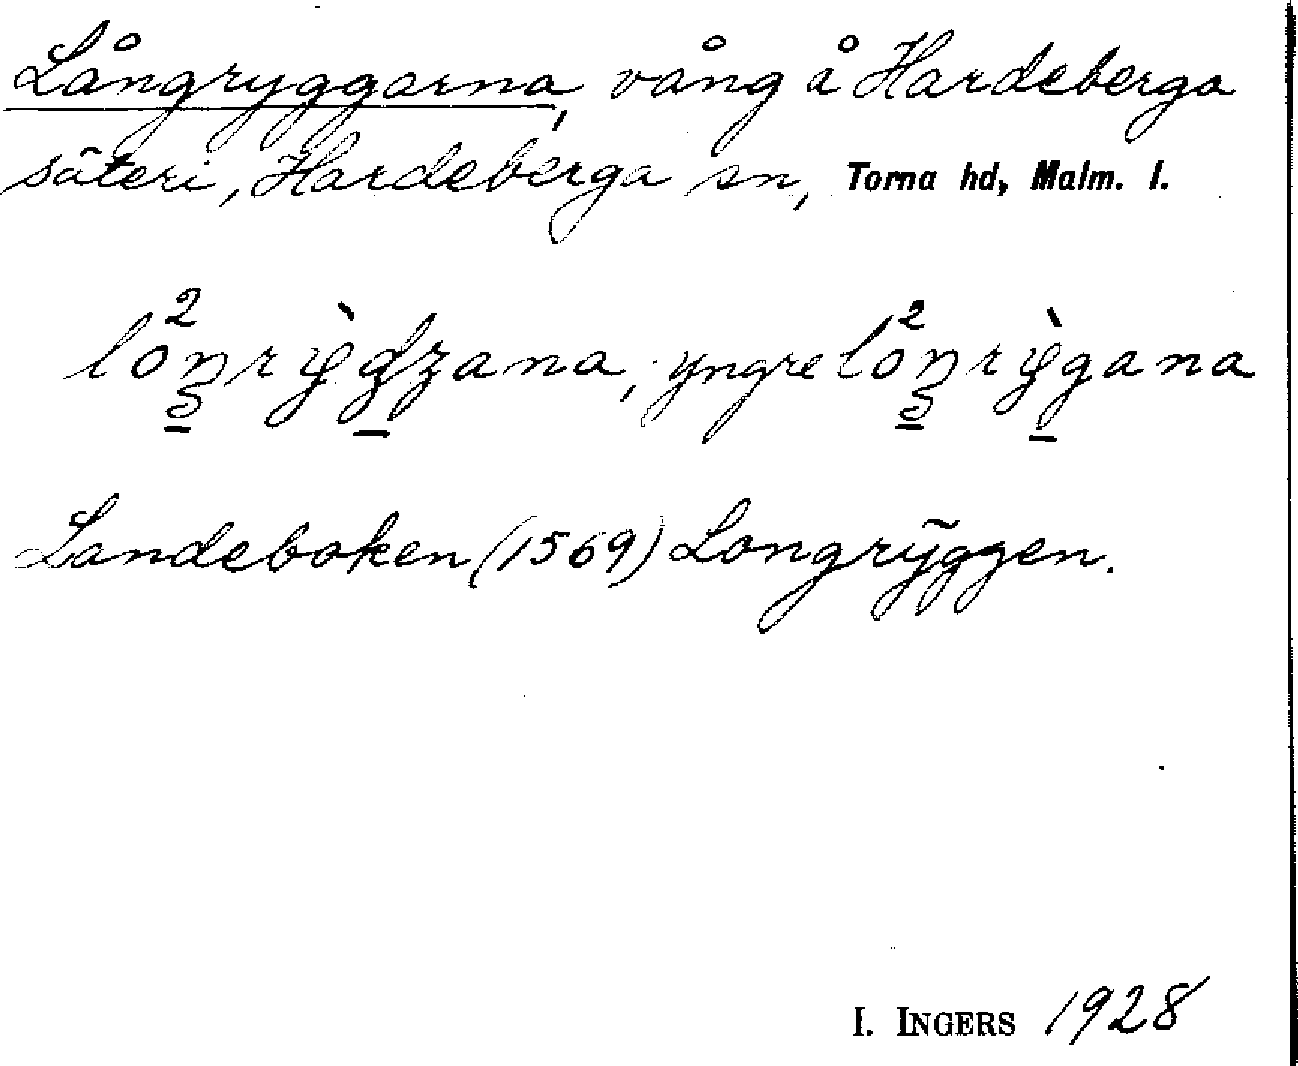 Långryggarna, vång å Hardeberga
säteri, Hardeberga sn, Torna hd, Malm. l.
lo²ŋryd̀ʒana, yngre lo²ŋrỳgana
Landeboken (1569) Longrÿggen.
I. INGERS 1928